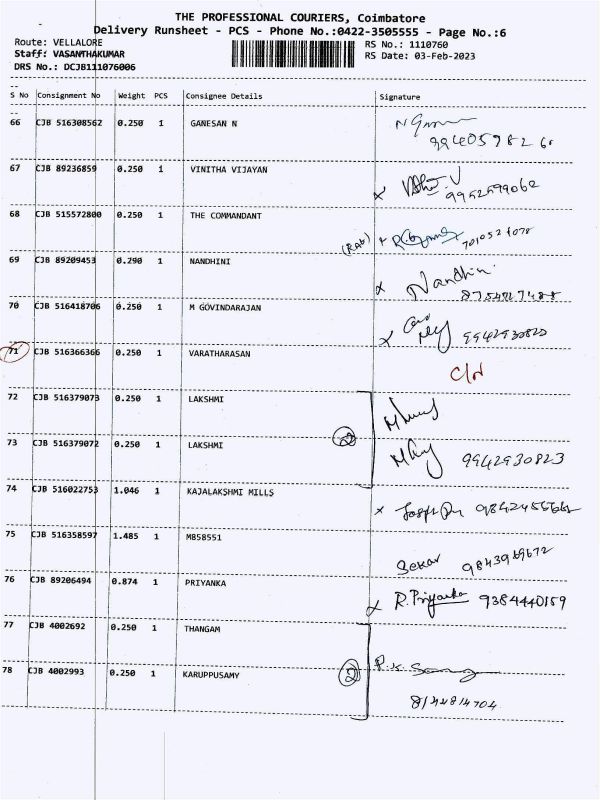 THE PROFESSIONAL COURIERS, Coimbatore
Delivery Runsheet - PCS - Phone No.:0422-3505555 - Page No.:6
Route: VELLALORE
Staff: VASANTHAKUMAR
DRS No.: DCJB111076006
RS No.: 1110760
RS Date: 03-Feb-2023
S No Consignment No Weight PCS Consignee Details Signature
66 CJB 516308562 0.250 1 GANESAN N
67 CJB 89236859 0.250 1 VINITHA VIJAYAN
9952599062
68 CJB 515572800 0.250 1 THE COMMANDANT
69 CJB 89209453 0.290 1 NANDHINI
Nandhini
70 CJB 516418706 0.250 1 M GOVINDARAJAN
9942930823
71 CJB 516366366 0.250 1 VARATHARASAN
72 CJB 516379073 0.250 1 LAKSHMI
2
73 CJB 516379072 0.250 1 LAKSHMI
9942930823
74 CJB 516022753 1.046 1 KAJALAKSHMI MILLS
75 CJB 516358597 1.485 1 MB58551
Sekar
76 CJB 89206494 0.874 1 PRIYANKA
R. Priyanka 9384440159
77 CJB 4002692 0.250 1 THANGAM
78 CJB 4002993 0.250 1 KARUPPUSAMY
2
8144814704